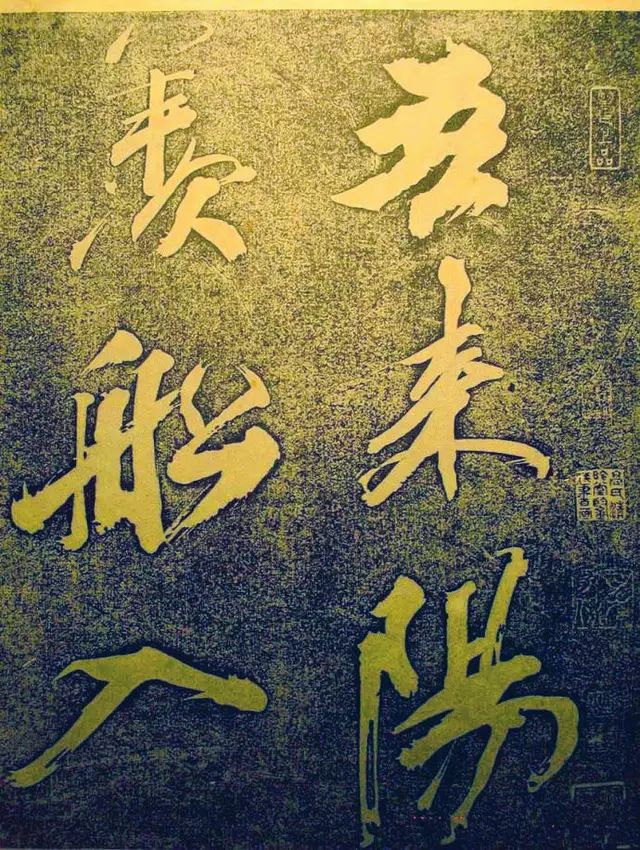 吾来陽
羨船入